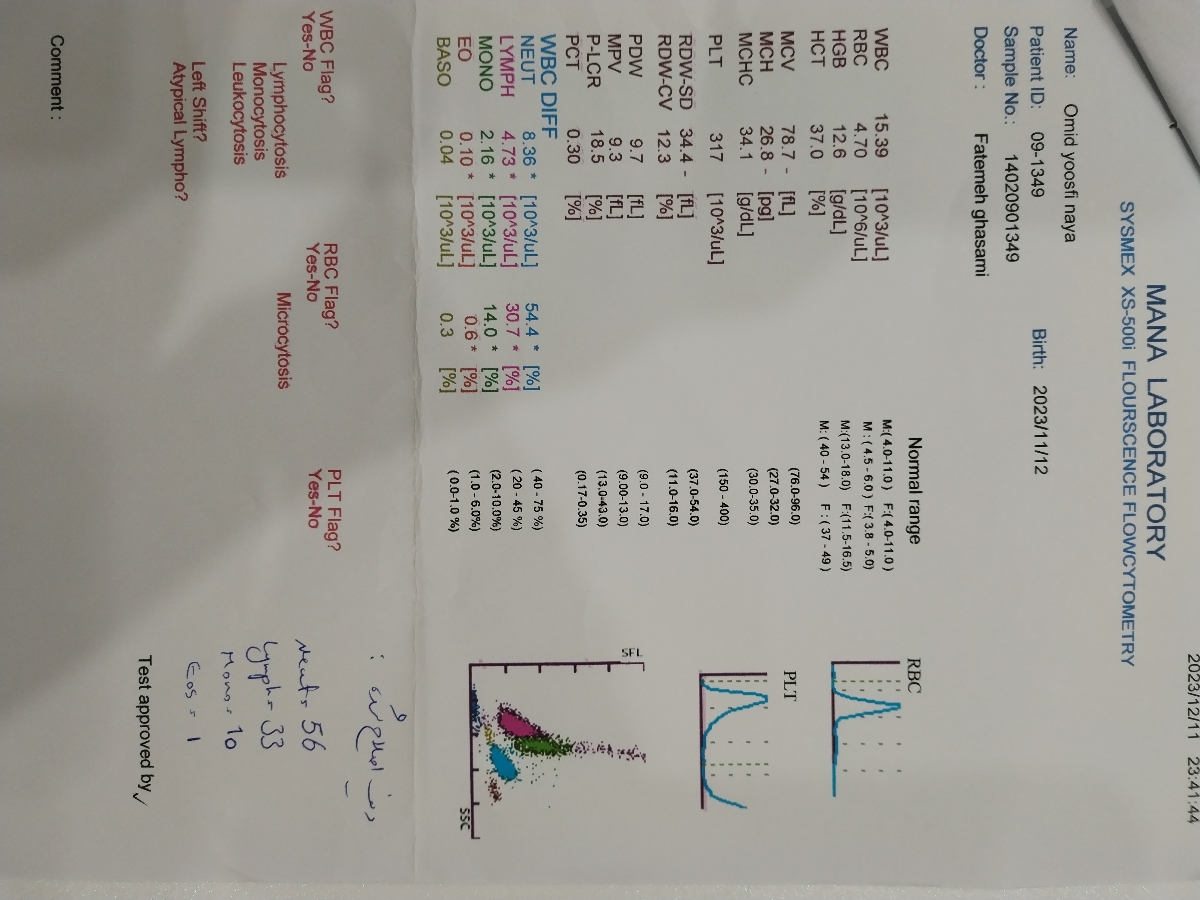 2023/12/11 23:41:44
MANA LABORATORY
SYSMEX XS-500i FLOURSCENCE FLOWCYTOMETRY
Name: Omid yoosfi naya
Patient ID: 09-1349 Birth: 2023/11/12
Sample No.: 14020901349
Doctor : Fatemeh ghasami
Normal range
WBC 15.39 [10^3/uL] M:( 4.0-11.0 ) F:(4.0-11.0 )
RBC 4.70 [10^6/uL] M : ( 4.5 - 6.0 ) F:( 3.8 - 5.0)
HGB 12.6 [g/dL] M:(13.0-18.0) F:(11.5-16.5)
HCT 37.0 [%] M: ( 40 - 54 ) F : ( 37 - 49 )
MCV 78.7 - [fL] (76.0-96.0)
MCH 26.8 - [pg] (27.0-32.0)
MCHC 34.1 [g/dL] (30.0-35.0)
PLT 317 [10^3/uL] (150 - 400)
RDW-SD 34.4 - [fL] (37.0-54.0)
RDW-CV 12.3 [%] (11.0-16.0)
PDW 9.7 [fL] (9.0 - 17.0)
MPV 9.3 [fL] (9.00-13.0)
P-LCR 18.5 [%] (13.0-43.0)
PCT 0.30 [%] (0.17-0.35)
WBC DIFF
NEUT 8.36 * [10^3/uL] 54.4 * [%] ( 40 - 75 %)
LYMPH 4.73 * [10^3/uL] 30.7 * [%] ( 20 - 45 %)
MONO 2.16 * [10^3/uL] 14.0 * [%] (2.0-10.0%)
EO 0.10 * [10^3/uL] 0.6 * [%] (1.0 - 6.0%)
BASO 0.04 [10^3/uL] 0.3 [%] ( 0.0-1.0 %)
RBC
PLT
SFL
SSC
WBC Flag? RBC Flag? PLT Flag?
Yes-No Yes-No Yes-No
Lymphocytosis Microcytosis
Monocytosis
Leukocytosis
Left Shift?
Atypical Lympho?
Neut = 56
Lymph = 33
Mono = 10
Eos = 1
Test approved by
Comment :